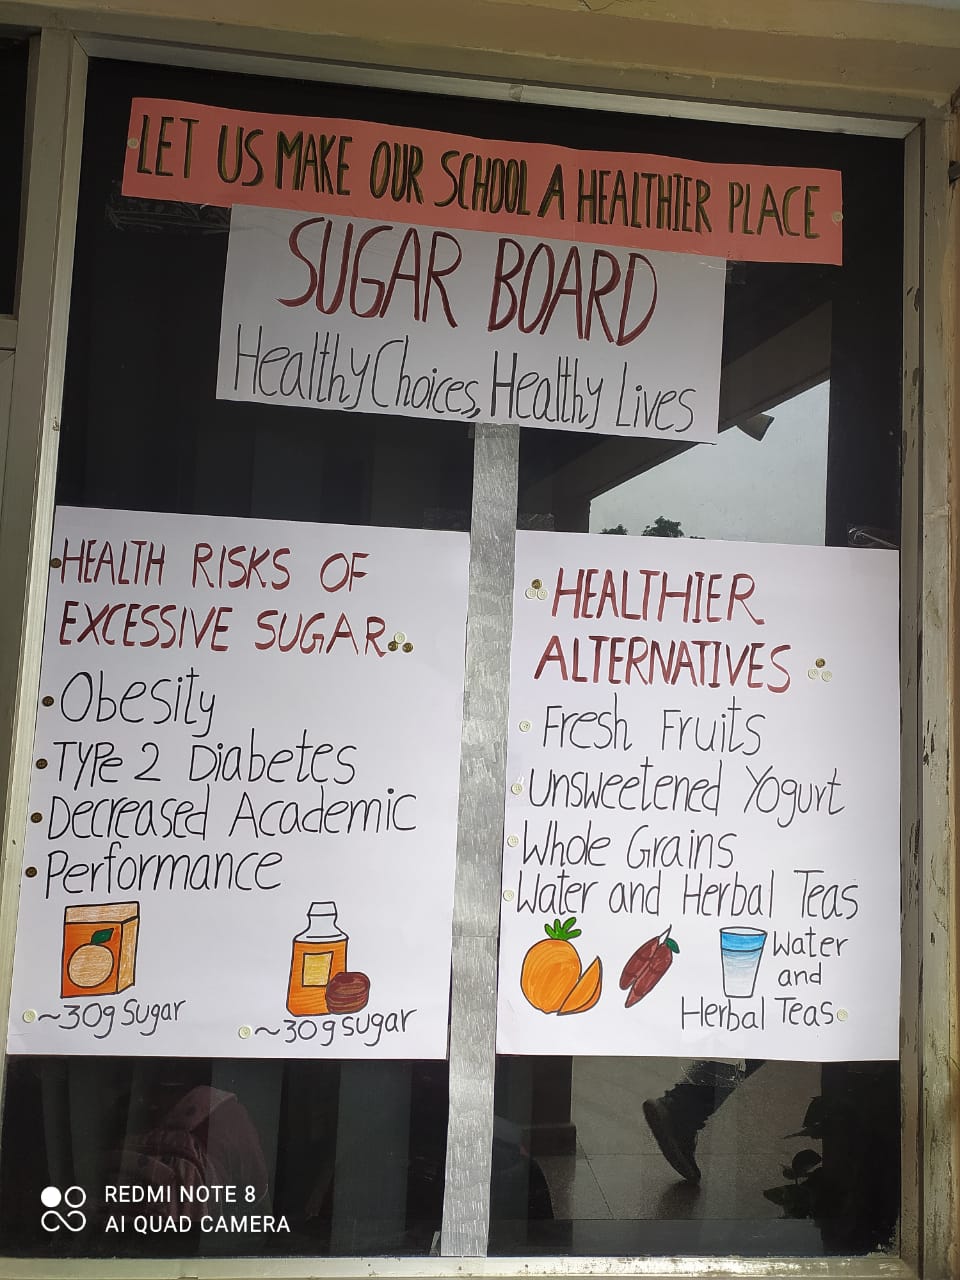 LET US MAKE OUR SCHOOL A HEALTHIER PLACE
SUGAR BOARD
Healthy Choices, Healthy Lives
HEALTH RISKS OF
EXCESSIVE SUGAR
Obesity
TYPe 2 Diabetes
Decreased Academic
Performance
~30g Sugar
~30g sugar
HEALTHIER
ALTERNATIVES
Fresh Fruits
Unsweetened Yogurt
Whole Grains
Water and Herbal Teas
Water
and
Herbal Teas
REDMI NOTE 8
AI QUAD CAMERA